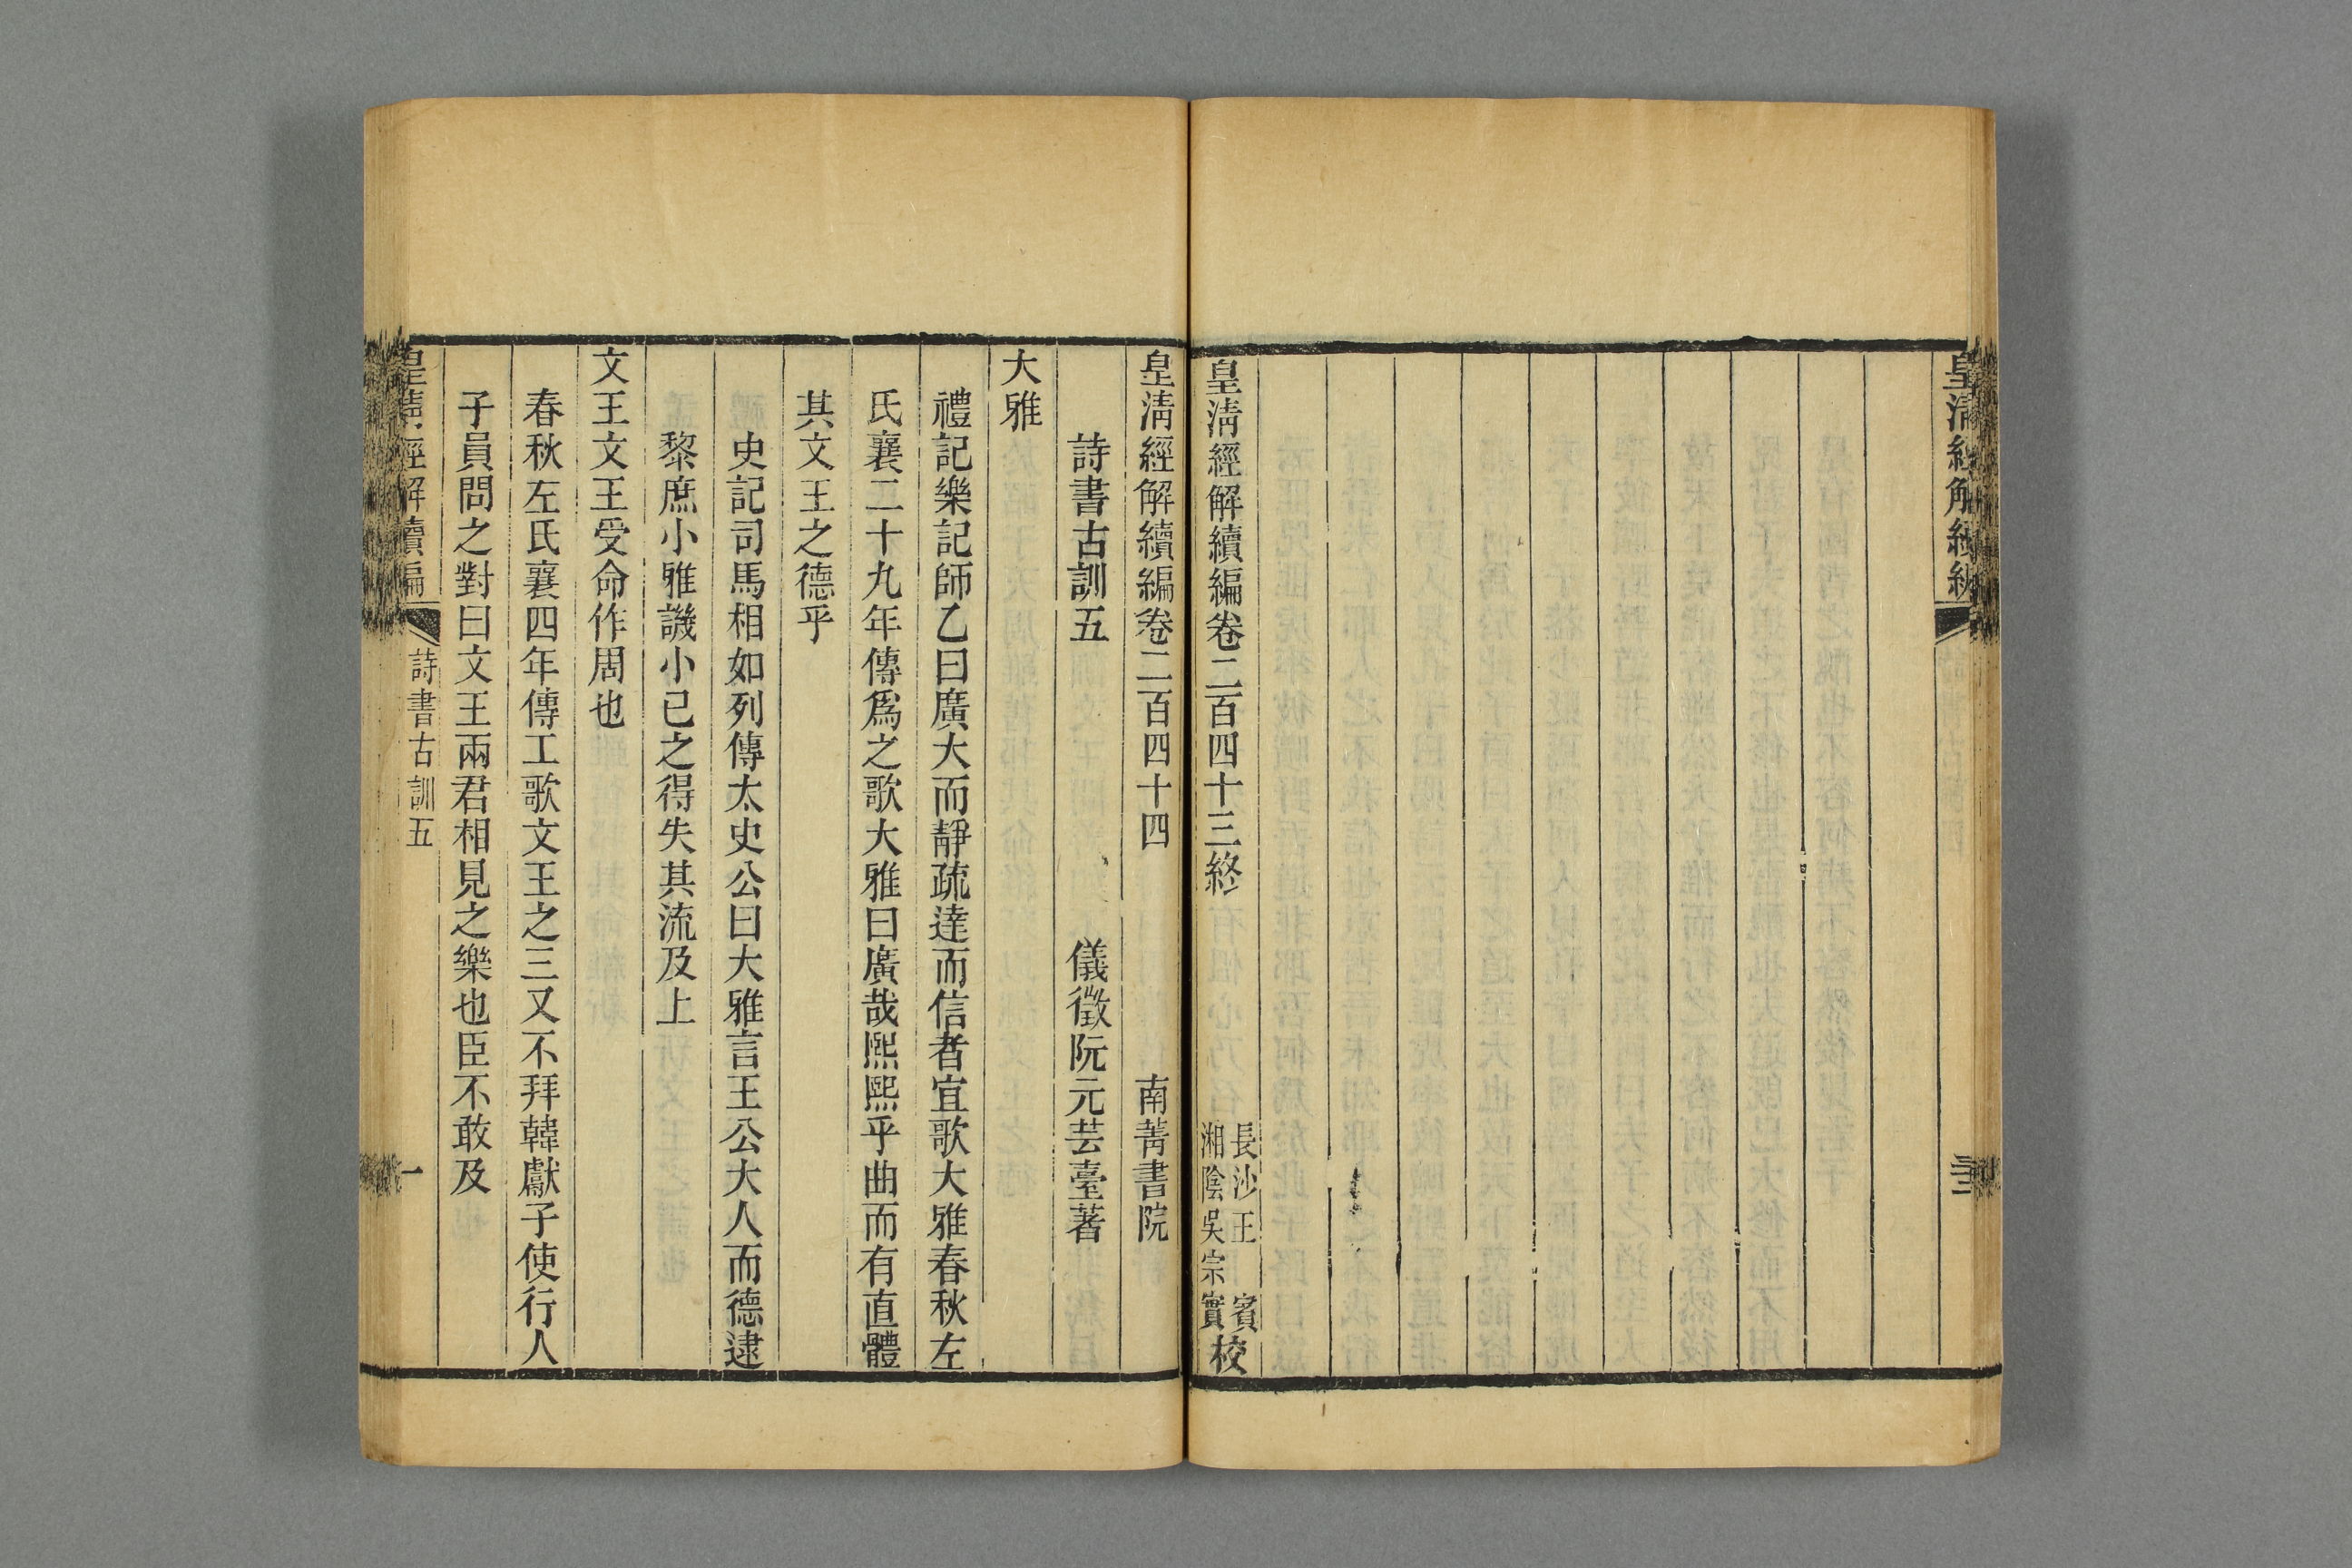 皇清經解續編
皇清經解續編卷二百四十三終
長沙王 賓
湘陰吳宗實校
皇清經解續編卷二百四十四 南菁書院
詩書古訓五 儀徵阮元芸臺著
大雅
禮記樂記師乙曰廣大而靜疏達而信者宜歌大雅春秋左
氏襄二十九年傳爲之歌大雅曰廣哉熙熙乎曲而有直體
其文王之德乎
史記司馬相如列傳太史公曰大雅言王公大人而德逮
黎庶小雅譏小己之得失其流及上
文王文王受命作周也
春秋左氏襄四年傳工歌文王之三又不拜韓獻子使行人
子員問之對曰文王兩君相見之樂也臣不敢及
皇清經解續編 詩書古訓五 一